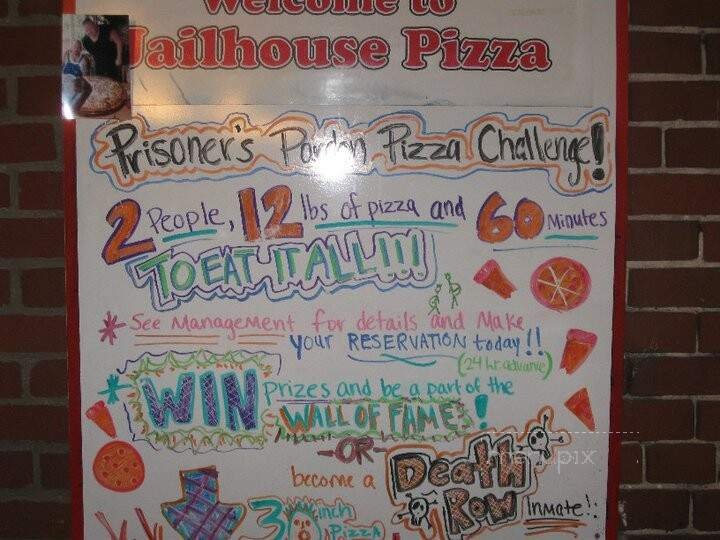 Welcome to
Jailhouse Pizza
Prisoner's Pardon Pizza Challenge!
2 People, 12 lbs of pizza and 60 Minutes
TO EAT IT ALL!!!
* See Management for details and Make
your RESERVATION today!!
(24 hr. advance)
* WIN prizes and be a part of the
WALL OF FAME!
-OR-
menupix
become a Death Row Inmate!
30 inch
Pizza